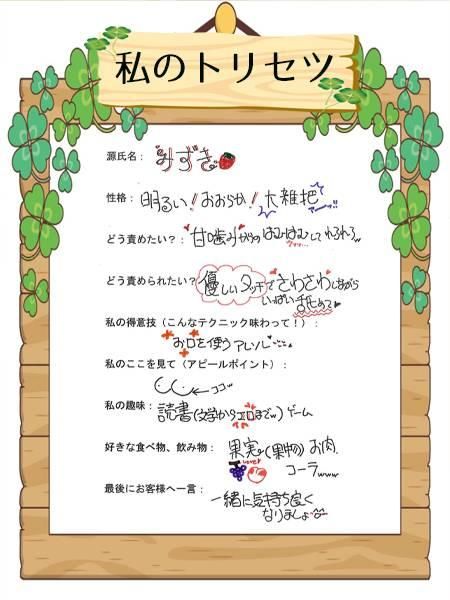 私のトリセツ
源氏名：みずき
性格：明るい！おおらか！大雑把
どう責めたい？：甘噛みからのはむはむしてれろれろw
どう責められたい？優しいタッチでさわさわしながら
いっぱい舐めて♥
私の得意技（こんなテクニック味わって！）：
お口を使うアレ
私のここを見て（アピールポイント）：
←ココッ
私の趣味：読書(文学からエロまでw)ゲーム
好きな食べ物、飲み物：果実(果物)お肉
コーラwww
最後にお客様へ一言：一緒に気持ち良く
なりましょ